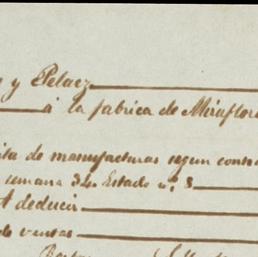 y Pelaez
á la fabrica de Miraflor
ita de manufacturas segun contr
semana 34. Estado nº 8
A deducir
de ventas